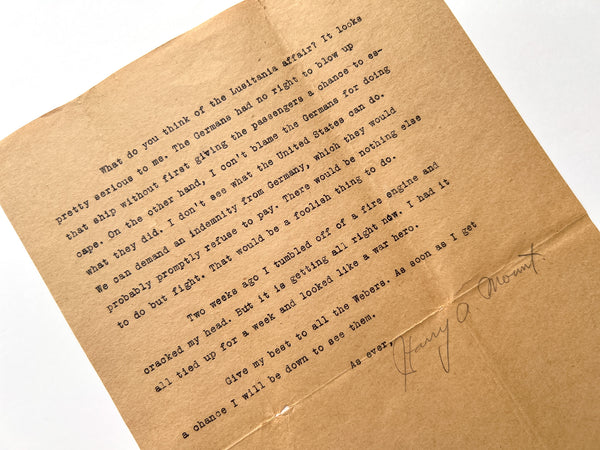 What do you think of the Lusitania affair? It looks
pretty serious to me. The Germans had no right to blow up
that ship without first giving the passengers a chance to es-
cape. On the other hand, I con't blame the Germans for doing
what they did. I don't see what the United States can do.
We can demand an indemnity from Germany, which they would
probably promptly refuse to pay. There would be nothing else
to do but fight. That would be a foolish thing to do.
Two weeks ago I tumbled off of a fire engine and
cracked my head. But it is getting all right now. I had it
all tied up for a week and looked like a war hero.
Give my best to all the Webers. As soon as I get
a chance I will be down to see them.
As ever,
Harry O. Mount.